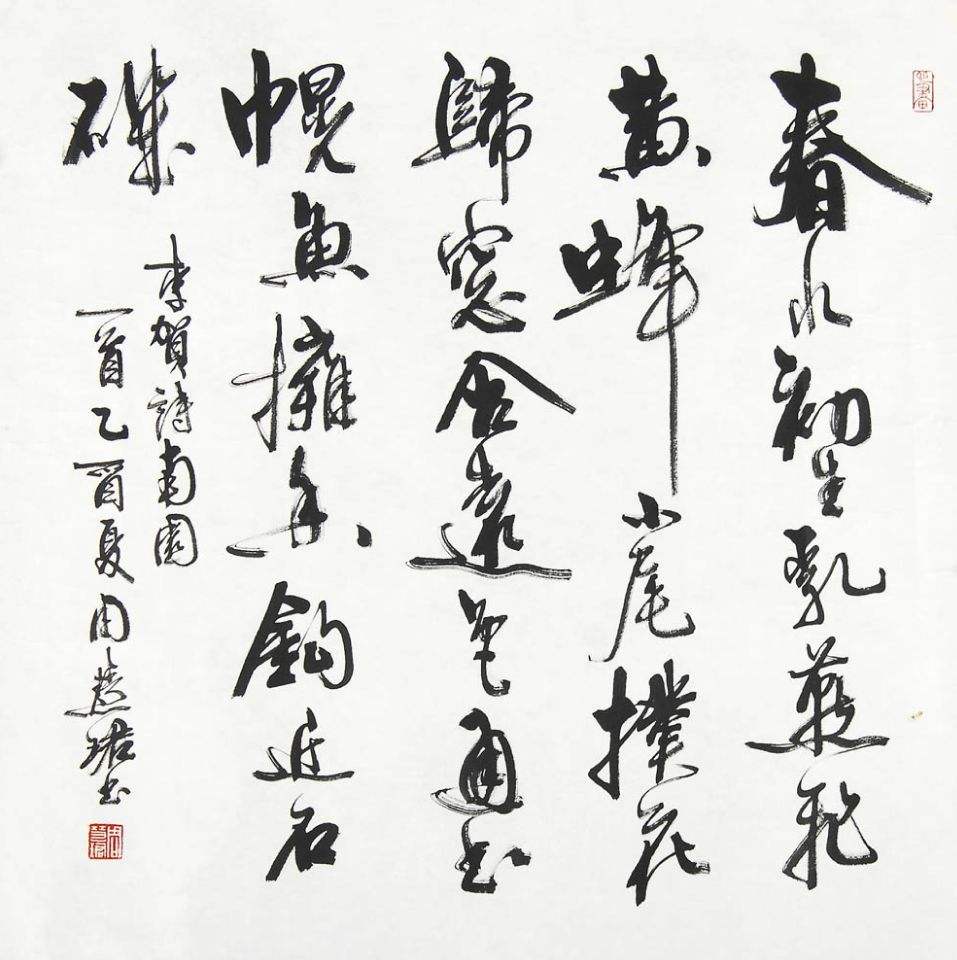 春水初生乳燕飛
黄蜂小尾撲花
歸窓含遠色通书
幌魚擁香鈎近石
磯
李賀詩南園
一首乙酉夏周慧珺书